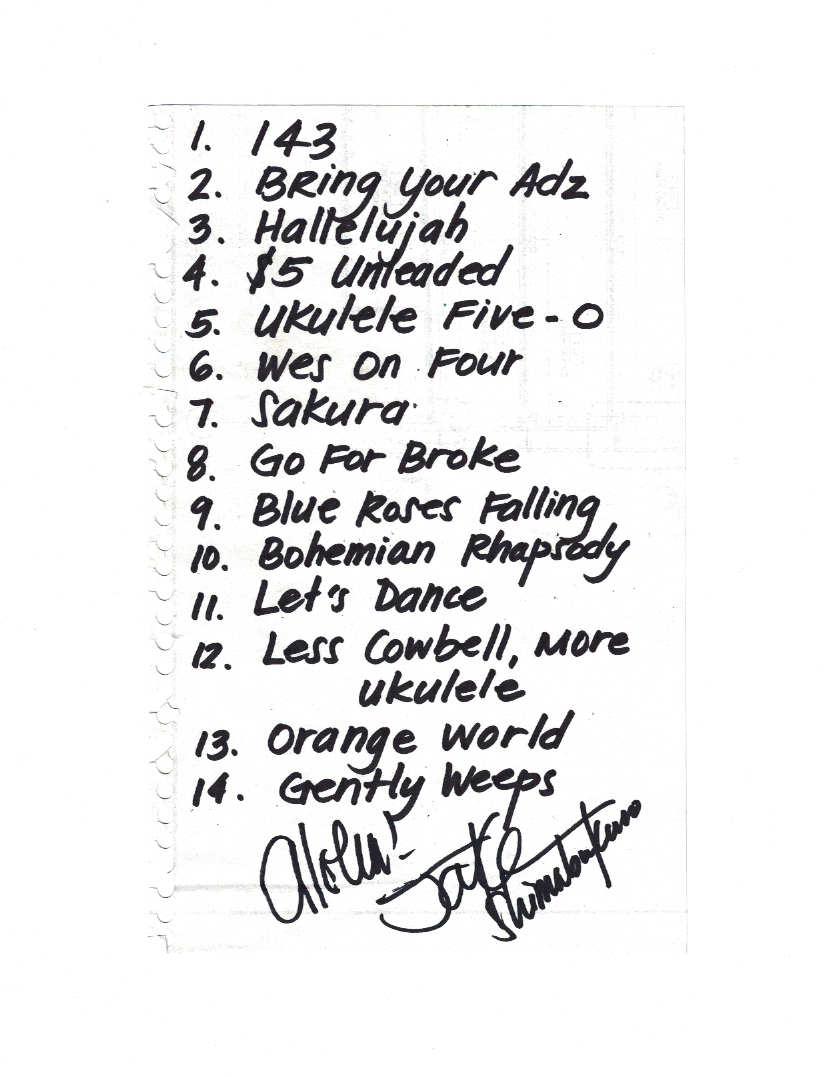 1. 143
2. Bring Your Adz
3. Hallelujah
4. $5 Unleaded
5. Ukulele Five-O
6. Wes On Four
7. Sakura
8. Go For Broke
9. Blue Roses Falling
10. Bohemian Rhapsody
11. Let's Dance
12. Less Cowbell, More
Ukulele
13. Orange World
14. Gently Weeps
Aloha! Jake Shimabukuro